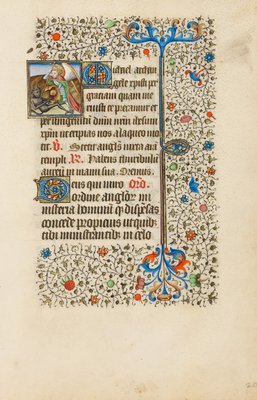 Michael archan
gele xpisti per
graciam quam me
ruisti te precamur et
per unigenitū dnm nrm ihesum
xpm ut eripias nos a laqueo mor
tis. V. Stetit angl's iuxta ara
templi. R. habens thuribulū
aureū in manu sua. Oremus.
Deus qui miro Oro.
ordine angl'or mi
nisteria hominū q dispēsas
concede propicius ut quib;
tibi ministrantib; in celo